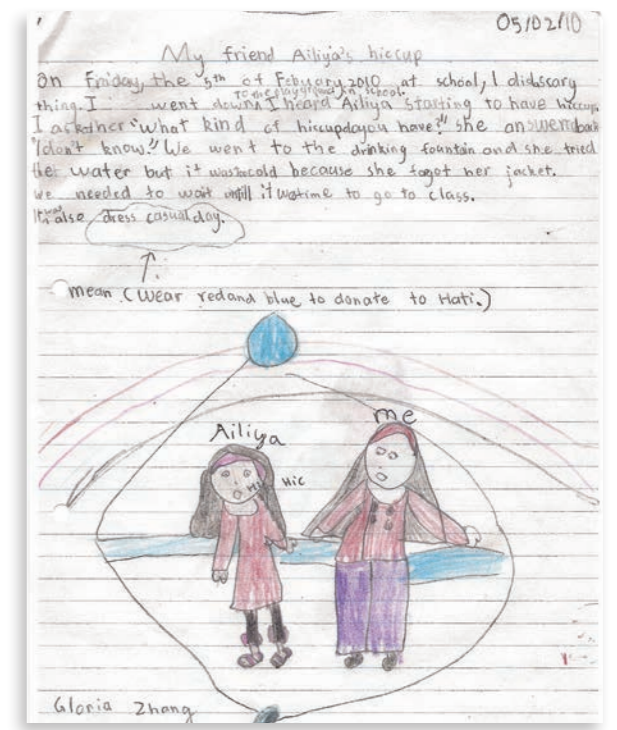 05/02/10
My friend Ailiya's hiccup
On Friday, the 5th of Febuary 2010 at school, I did scary
to the playground in school.
thing. I went down, I heard Ailiya starting to have hiccup.
I ask her "what kind of hiccup do you have?" she answerd back
"I don't know." We went to the drinking fountain and she tried
the water but it was to cold because she fogot her jacket.
We needed to wait untill it was time to go to class.
It was also dress casual day.
mean (wear red and blue to donate to Hati.)
Ailiya
me
Hic Hic
Gloria Zhang